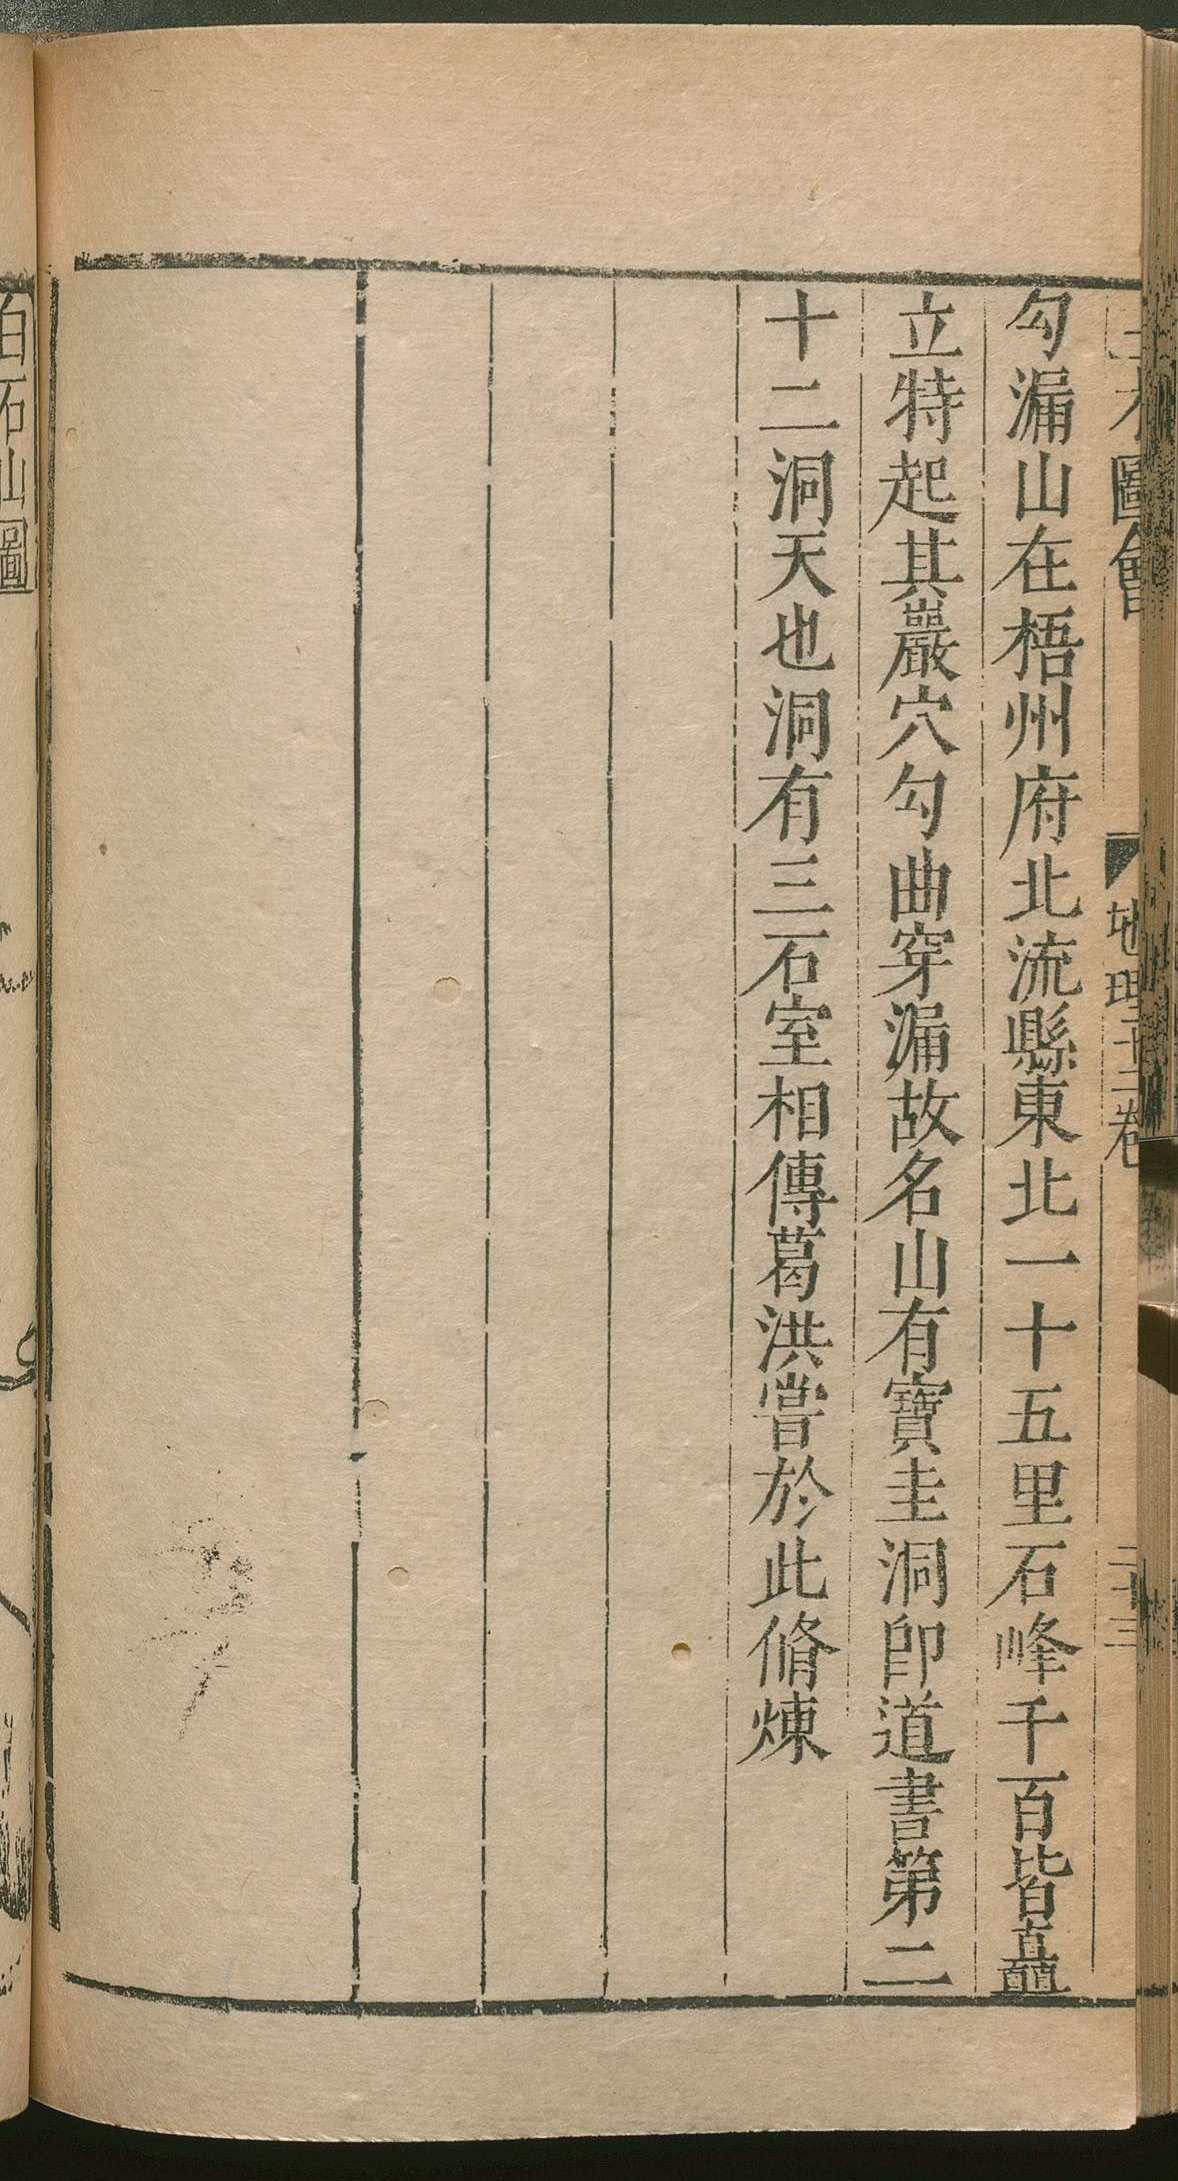 圖會
地理十二卷
二十三
勾漏山在梧州府北流縣東北一十五里石峰千百皆矗
立特起其巖穴勾曲穿漏故名山有寶圭洞即道書第二
十二洞天也洞有三石室相傳葛洪嘗於此脩煉
白石山圖